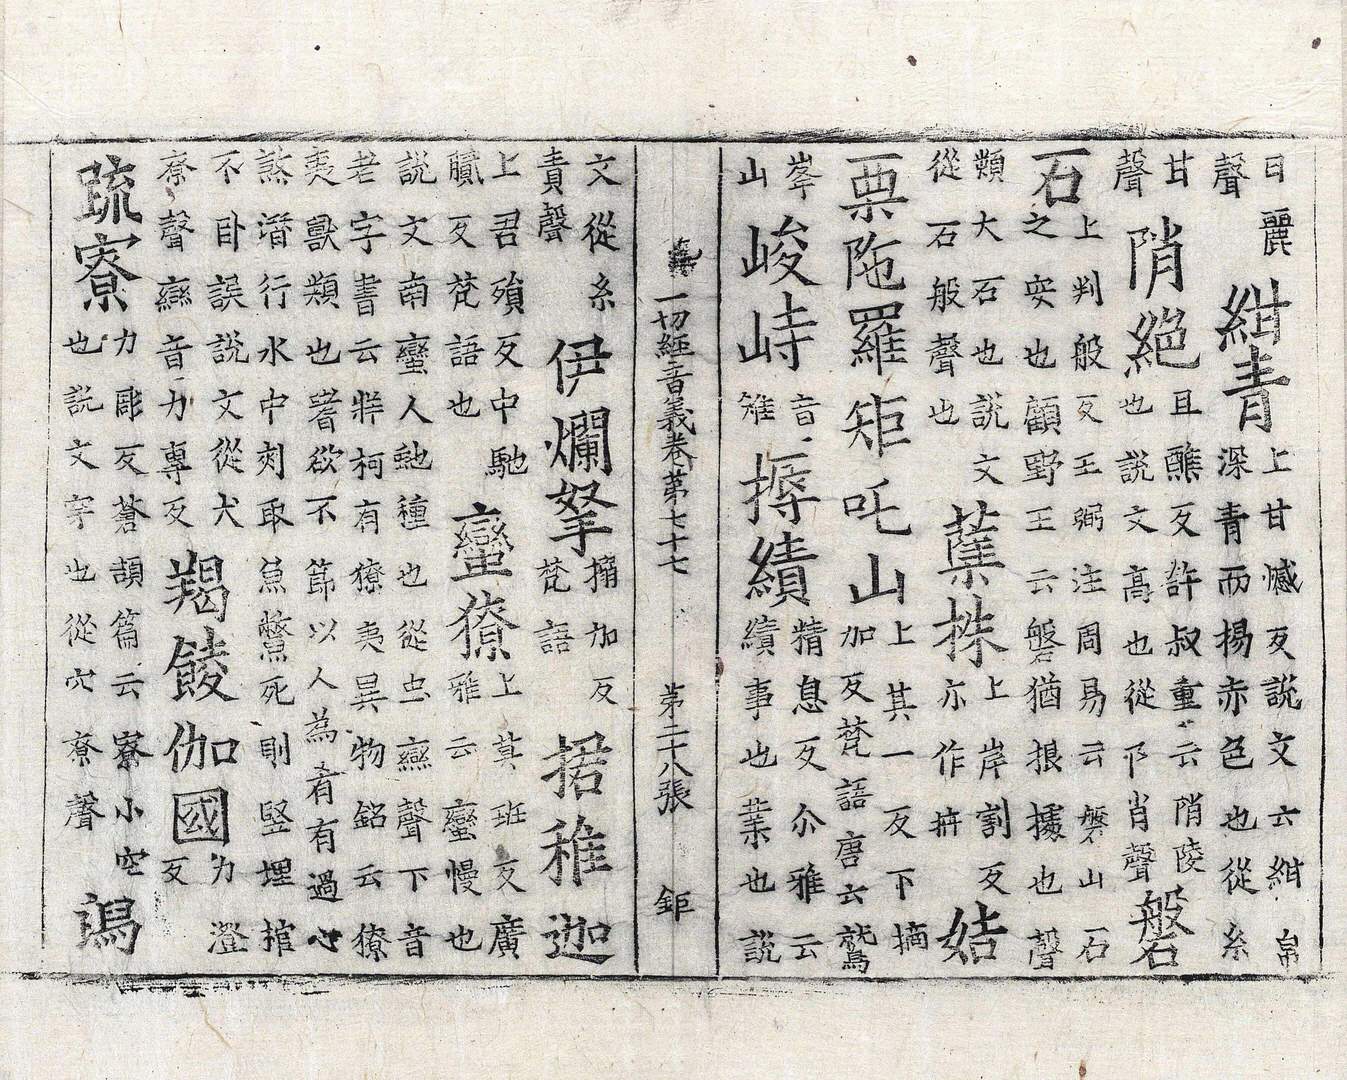 日麗
聲
紺青
上甘憾反說文云紺帛
深青而揚赤色也從糸
甘
聲
陗絕
且醮反許叔重云陗陵
也說文高也從阝肖聲
磐
石
上判般反王弼注周易云磐山石
之安也顧野王云磐猶根據也聲
類大石也說文
從石般聲也
蘖株
上岸割反
亦作
姞
栗陁羅矩吒山
上其一反下摘
加反梵語唐云鷲
峯
山
峻峙
音
雉
搙績
精息反尒雅云
績事也業也說
一切經音義卷第七十七　第二十八張　鉅
文從糸
責聲
伊爛拏
搦加反
梵語
捃稚迦
上君殞反中馳
膩反梵語也
蠻獠
上莫班反廣
雅云蠻慢也
說文南蠻人虵種也從虫䜌聲下音
老字書云牂柯有獠夷異物銘云獠
夷獸類也嗜欲不節以人為肴有過心
煞潛行水中刾取魚鱉死則竪埋棺
不臥誤說文從犬
尞聲䜌音力專反
羯餕伽國
力澄
反
疏寮
力彫反蒼頡篇云寮小空
也說文穿也從穴尞聲